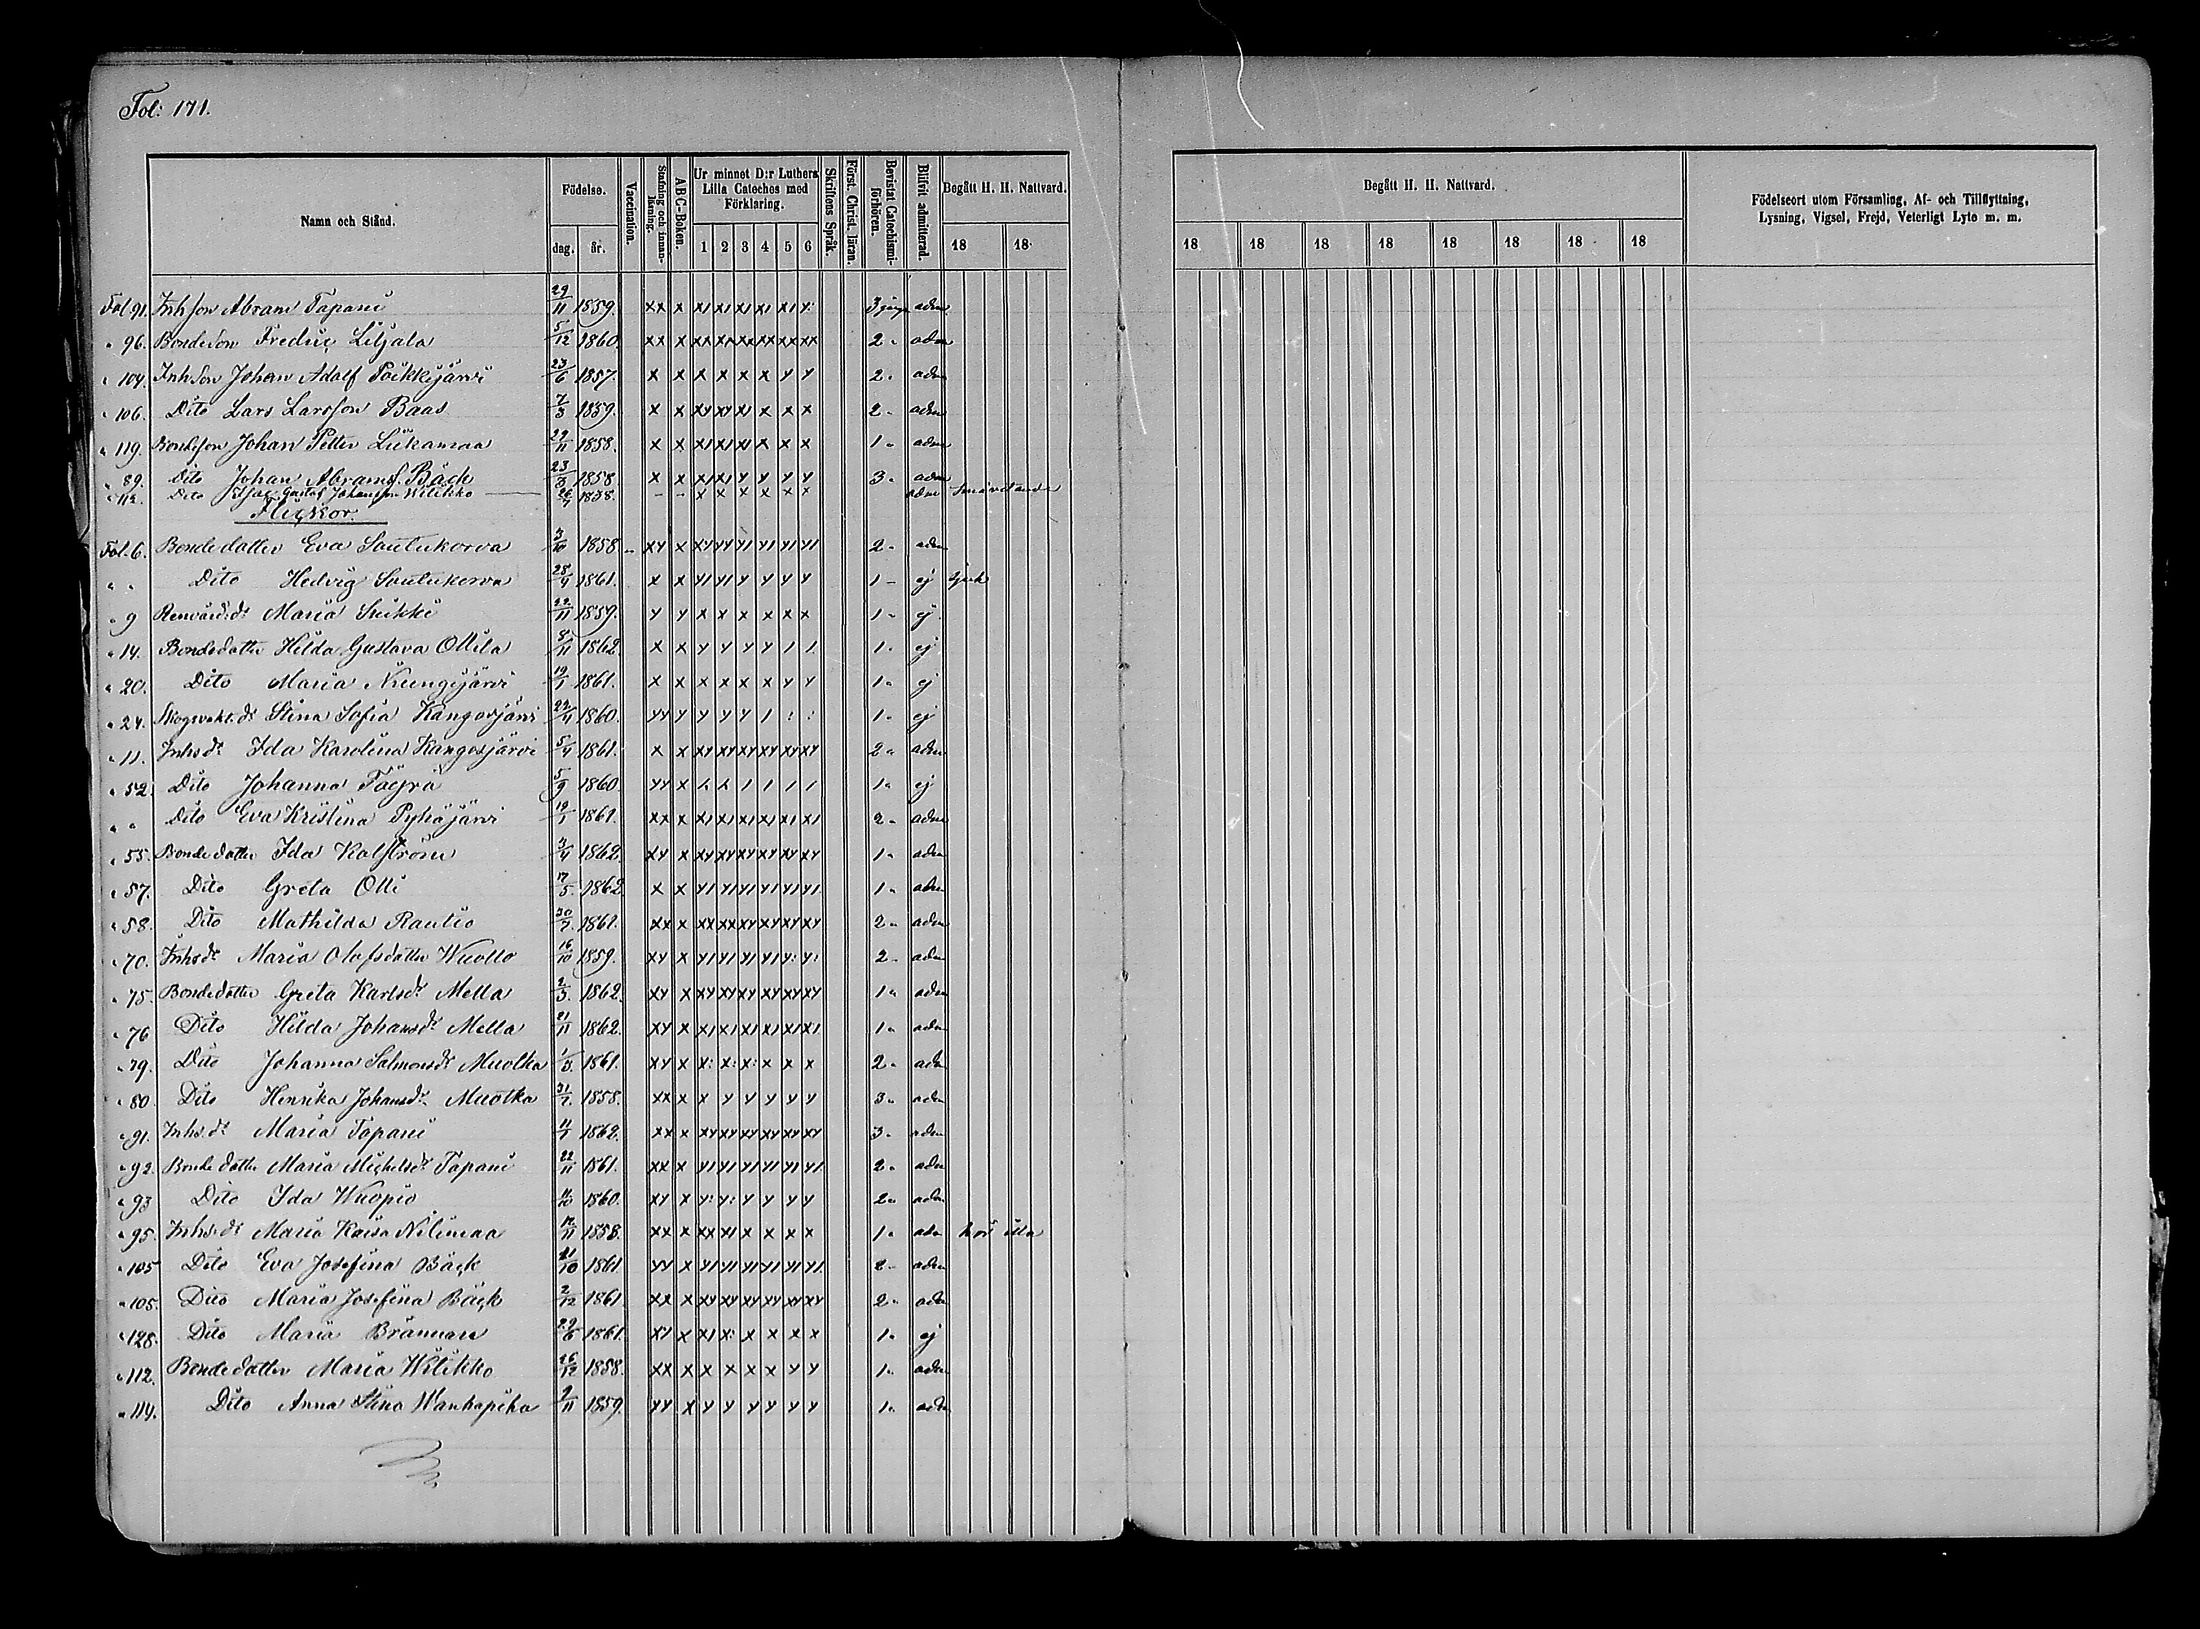 Fol: 171.
Namn och Stånd.
Födelse.
dag.
år.
Vaccination.
Stafning och innanläsning.
ABC-Boken.
Ur minnet D:r Luthers Lilla Cateches med Förklaring.
1 2 3 4 5 6
Skriftens Språk.
Först. Christ. läran.
Bevistat Catechismiförhören.
Blifvit admitterad.
Begått H. H. Nattvard.
18 18
Begått H. H. Nattvard.
18 18 18 18 18 18 18 18
Födelseort utom Församling, Af- och Tillflyttning, Lysning, Vigsel, Frejd, Veterligt Lyte m. m.
Fol 91. Inhson Abram Tapani 29/11 1859. xx x x1 x1 x1 x1 x1 x: 3 adm
" 96. Bondeson Fredric Liljala 5/12 1860. xx x xx xx xx xx xx xx 2 " adm
" 104. Inhson Johan Adolf Poikkijärvi 23/6 1857. x x x x x x y y 2 " adm
" 106. Dito Lars Larsson Baas 7/3 1859. x x xy xy x1 x x x 2 " adm
" 119. Bondeson Johan Petter Liikamaa 29/11 1858. x x x1 x1 x1 x x x 1 " adm
" 89. Dito Johan Abramsf. Bäck 23/3 1858. x x x1 x1 y y y y 3 " adm
" 112. Dito Isac Gustaf Johansson Wilikko 26/7 1838. - - x x x x x x adm Småvetande
Flickor.
Fol. 6. Bondedotter Eva Sautukorva 3/10 1858 xy x xy yy y1 y1 y1 y1 2 " adm
" " Dito Hedvig Sautukorva 28/4 1861. x x y1 y1 y y y y 1 - ej sjuk
" 9 Renvård:dr Maria Siikki 22/11 1859. y y x x x x x x 1 " ej
" 14. Bondedotter Hilda Gustava Ollila 8/11 1862 x x y y y y 1 1. 1 " ej
" 20. Dito Maria Niemgijärvi 19/1 1861. x x x x x x y y 1 " ej
" 24. Skogsvakt.dr Stina Sofia Kangosjärvi 22/11 1860. yy y y y y 1 : : 1 " ej
" 11. Inhsdr Ida Karolina Kangosjärvi 5/4 1861. x x xy xy xy xy xy xy 2 " adm
" 52. Dito Johanna Töyrä 5/9 1860 yy x 1. 1. 1 1 1 1 1 " ej
" " Dito Eva Kristina Pyhäjärvi 19/1 1861. xx x x1 x1 x1 x1 x1 x1 2 " adm
" 55. Bondedotter Ida Kalström 3/4 1862. xy x xy xy xy xy xy xy 1 " adm
" 57. Dito Greta Olli 17/5. 1862 x x y1 y1 y1 y1 y1 y1. 1 " adm
" 58. Dito Mathilda Rautio 30/7. 1861. xx x xx xx xy xy xy xy 2 " adm
" 70. Inhsdr Maria Olofsdotter Wuollo 16/10 1859. xy x y1 y1 y1 y1 y: y: 2 " adm
" 75. Bondedotter Greta Karlsdr Mella 2/3. 1862. xy x xy xy xy xy xy xy 1 " adm
" 76 Dito Hilda Johansdr Mella 21/11 1862. xy x x1 x1 x1 x1 x1 x1 1 " adm
" 79. Dito Johanna Salmonsdr Muotka 1/3. 1861. xy x x: x: x: x x x 2 " adm
" 80. Dito Henrika Johansdr Muotka 31/7. 1858. xx x x y y y y y 3 " adm
" 91. Inhs.dr Maria Tapani 11/1 1862. xx x xy xy xy xy xy xy 3 " adm
" 92. Bondedotter Maria Michelsdr Tapani 22/11 1861. xx x y1 y1 y1 y1 y1 y1. 2 " adm
" 93 Dito Ida Wuopio 11/10 1860. xy x y: y: y y y y 2 " adm
" 95. Inhs.dr Maria Kaisa Nilimaa 12/11 1858. xx x xx x1 x x x x 1 " adm hör illa
" 105 Dito Eva Josefina Bäck 21/10 1861. yy x y1 y1 y1 y1 y1 y1. 2 - adm
" 105. Dito Maria Josefina Bäck 2/12 1861 xx x xy xy xy xy xy xy 2 " adm
" 128. Dito Maria Brännare 29/6 1861. x1 x x1 x: x x x x 1 " ej
" 112. Bondedotter Maria Wilikko 26/12 1858. xx x x x x x y y 1 " adm
" 114. Dito Anna Stina Wanhapiha 9/11 1859. yy x y y y y y y 1 " adm